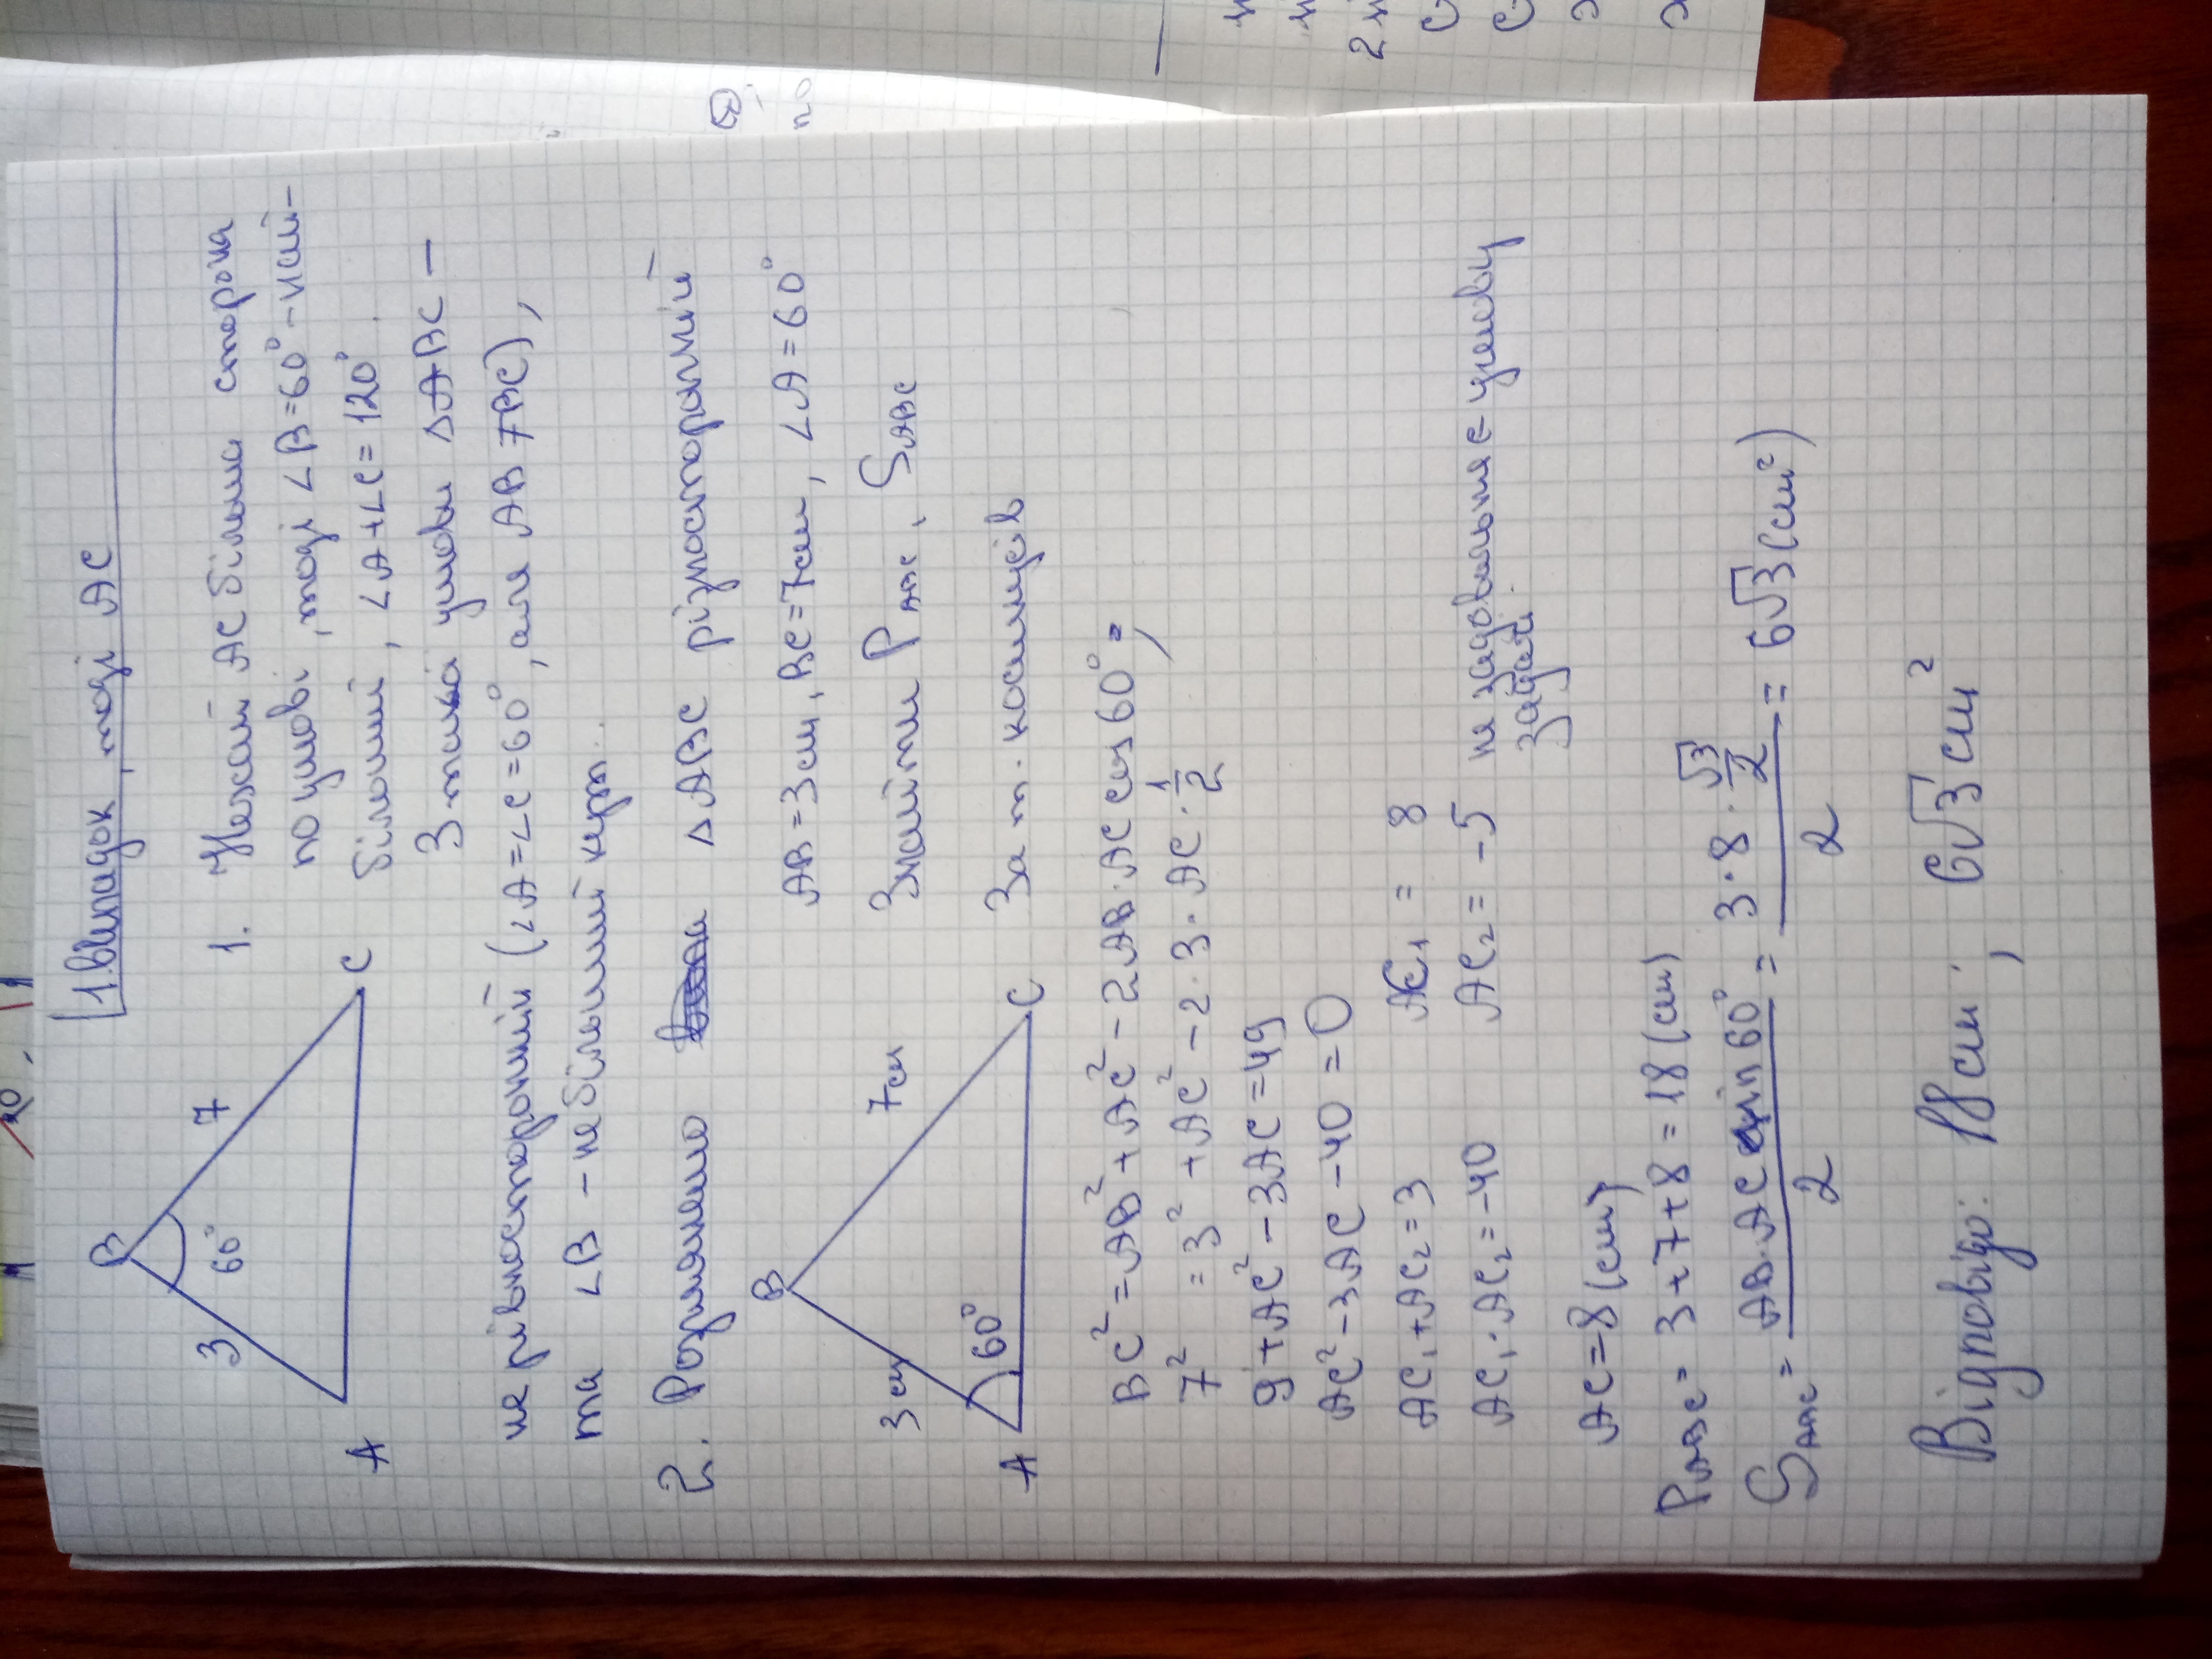 1. випадок, тоді AC
1. Нехай AC більша сторона
по умові, тоді ∠B=60° – най-
більший, ∠A+∠C=120°.
З такої умови △ABC –
не рівносторонній (∠A=∠C=60°, але AB≠BC),
та ∠B – не більший кут.
B
3
7
60°
A
C
2. Розглянемо △ABC різносторонній
AB=3см, BC=7см, ∠A=60°
Знайти P_ABC, S_ABC
За т. косинусів
B
3см
7см
60°
A
C
BC²=AB²+AC²-2AB·AC cos60°=,
7²=3²+AC²-2·3·AC·1/2
9+AC²-3AC=49
AC²-3AC-40=0
AC₁+AC₂=3 AC₁=8
AC₁·AC₂=-40 AC₂=-5 не задовольняє умову
задачі.
AC=8(см)
P_ABC=3+7+8=18(см)
S_ABC=AB·AC sin60°/2=3·8·√3/2/2=6√3(см²)
Відповідь: 18см; 6√3см²